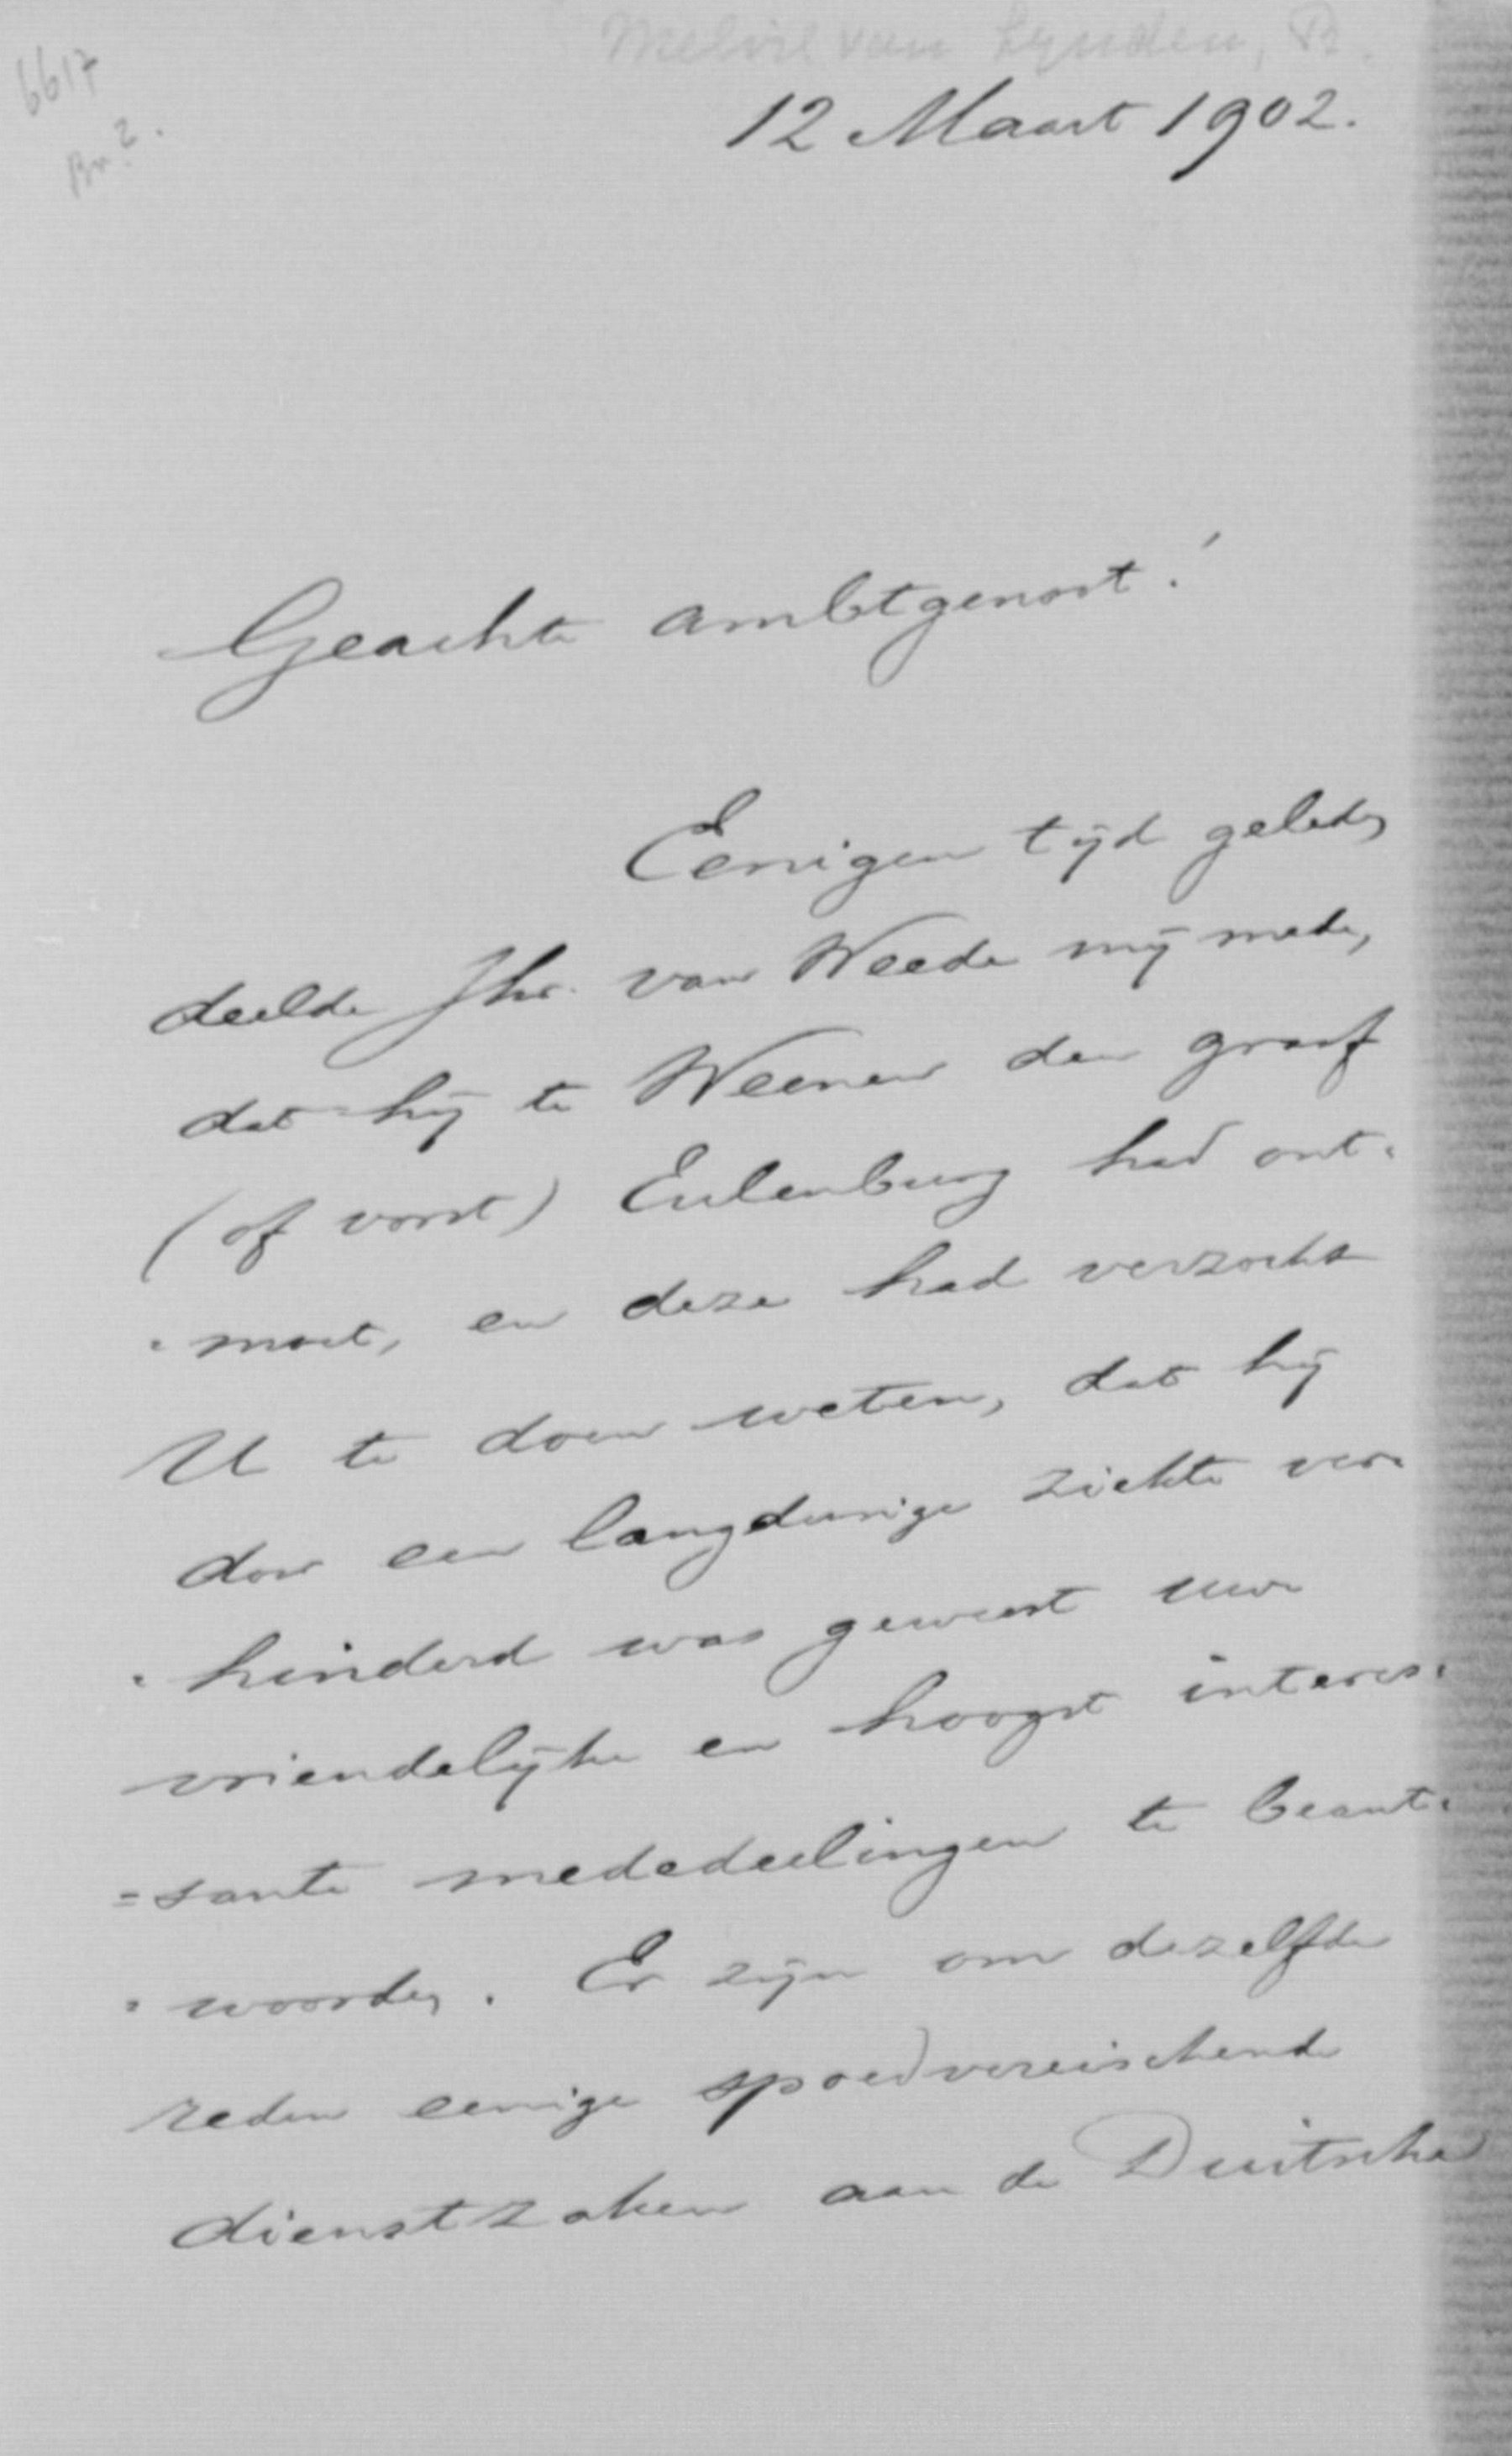 Melvil van Lynden, R.
6617
Br. 2.
12 Maart 1902.
Geachte ambtgenoot!
Eenigen tijd geleden
deelde Jhr. van Weede mij mede,
dat hij te Weenen den graaf
(of vorst) Eulenburg had ont-
-moet, en deze had verzocht
U te doen weten, dat hij
door een langdurige ziekte ver-
-hinderd was geweest uwe
vriendelijke en hoogst interes-
=sante mededeelingen te beant-
-woorden. Er zijn om dezelfde
reden eenige spoedvereischende
dienstzaken aan de Duitsche